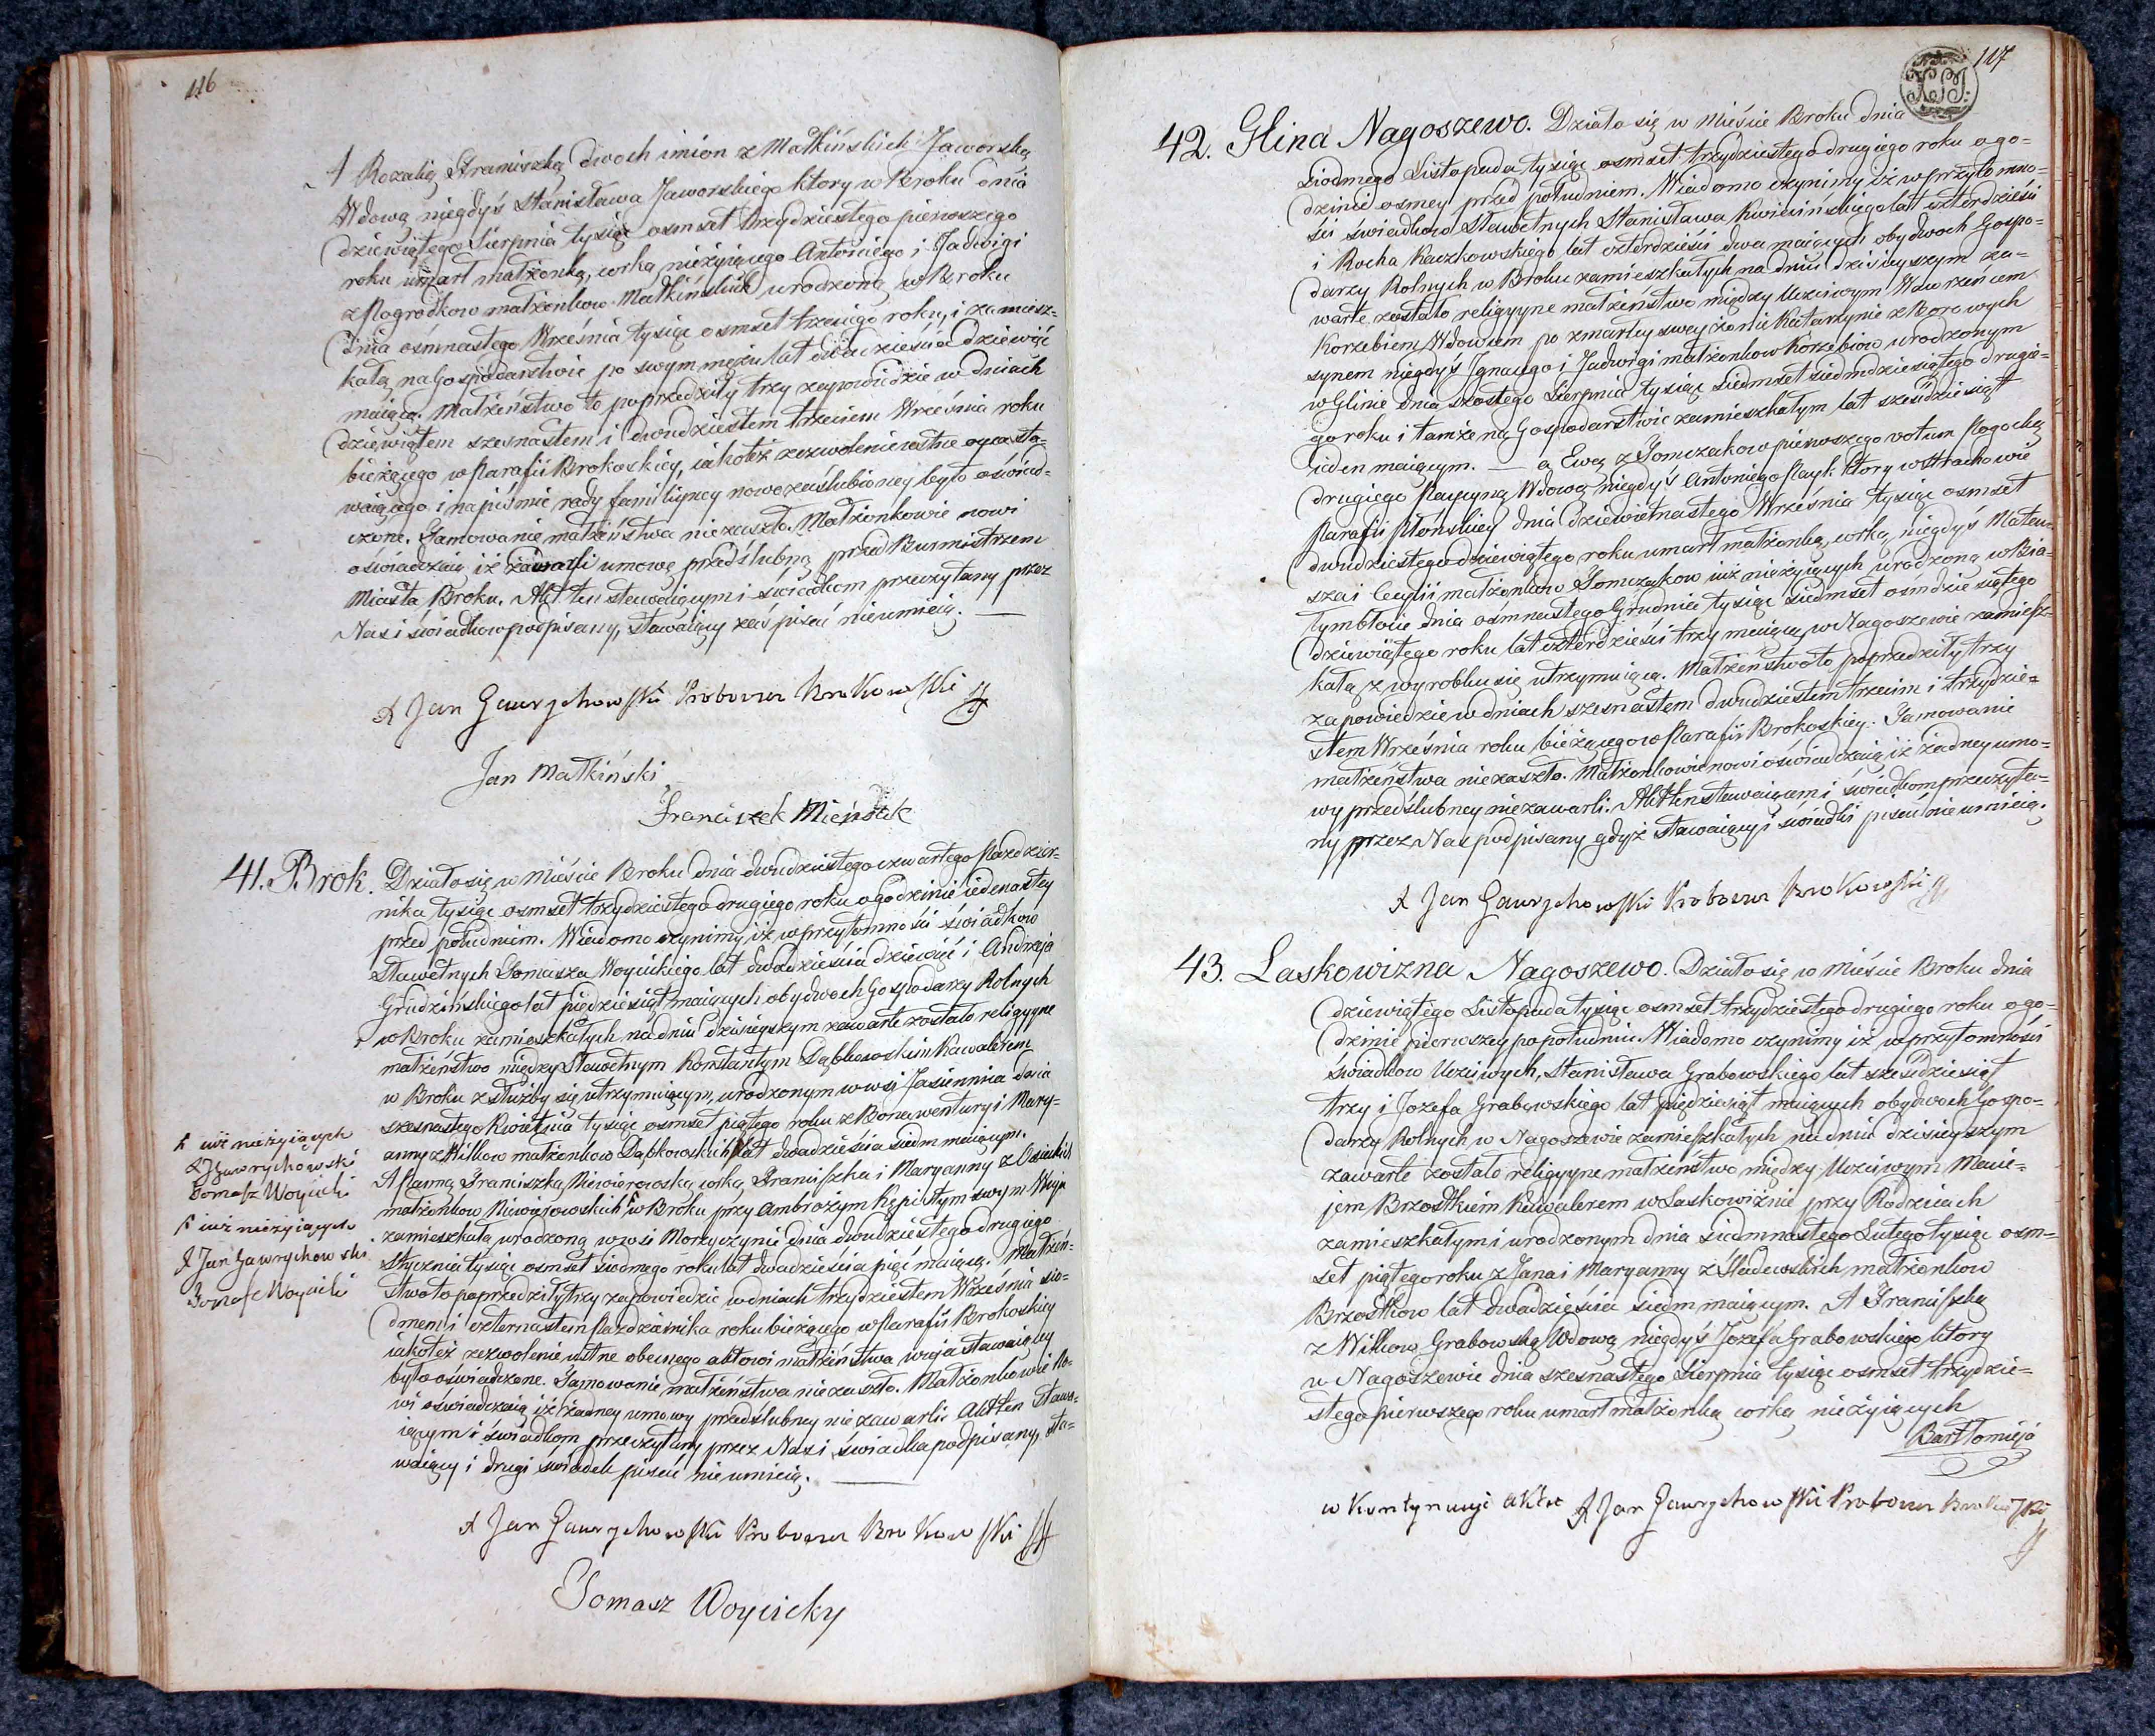 116
A Rozalią Franciszką dwoch imion z Małkińskich Jaworską
Wdową niegdyś Stanisława Jaworskiego ktory w Broku dnia
dziewiątego Sierpnia tysiąc osmset trzydziestego pierwszego
roku umarł małżonką, corką nieżyiącego Antoniego i Jadwigi
z Pogrodkow małżonkow Małkińskich urodzoną w Broku
dnia ośmnastego Września tysiąc osmset trzeciego roku, i zamiesz-
kałą na Gospodarstwie po swym mężu lat dwadzieścia dziewięć
maiącą. Małżeństwo to poprzedziły trzy zapowiedzie w dniach
dziewiątem szesnastem i dwudziestem trzeciem Września roku
bieżącego w Parafii Brokoskiey, iakoteż zezwolenie ustne
waiącego i na piśmie rady familiyney nowozaślubioney było oświad-
czone. Tamowanie małżeństwa nie zaszło. Małżonkowie nowi
oświadczaią iż zawarli umowę przedślubną przed Burmistrzem
Miasta Broku. Akt ten stawaiącym i świadkom przeczytany przez
Nas i świadkow podpisany, stawaiący zaś pisać nieumieią.
X Jan Gawrychowski Proboszcz Brokowski
Jan Małkiński
Franciszek Mieństk
41. Brok. Działo się w Mieście Broku dnia dwudziestego czwartego Paździer-
nika tysiąc osmset trzydziestego drugiego roku o godzinie iedenastey
przed południem. Wiadomo czynimy, iż w przytomności świadkow
Sławetnych Tomasza Woycickiego lat dwadzieścia dziewięć i Andrzeja
Grudzińskiego lat pięćdziesiąt maiących obydwoch Gospodarzy Rolnych
w Broku zamieszkałych, na dniu dzisieyszym zawarte zostało religyyne
małżeństwo między Sławetnym Konstantym Dąbkowskim Kawalerem
w Broku z służby się utrzymuiącym, urodzonym w wsi Jasiennica dnia
szesnastego Kwietnia tysiąc osmset piątego roku z Bonawentury i Mary-
anny z Wilkow małżonkow Dąbkowskich lat dwadzieścia siedm maiącym.
A Panną Franciszką Niewiarowską corką Franciszka i Maryanny z Osieckich
małżonkow Niewiarowskich w Broku przy Ambrożym Kępistym swym Wuju
zamieszkałą urodzoną w wsi Morzyczynie dnia dwudziestego drugiego
Stycznia tysiąc osmset siodmego roku lat dwadzieścia pięć maiącą. Małżeń-
stwo to poprzedziły trzy zapowiedzie w dniach trzydziestem Września sio-
dmem i czternastem Października roku bieżącego w Parafii Brokoskiey
iakoteż zezwolenie ustne obecnego aktowi małżeństwa wuja stawaiącey
było oświadczone. Tamowanie małżeństwa nie zaszło. Małżonkowie no-
wi oświadczaią iż żadney umowy przedślubney nie zawarli. Akt ten stawa-
iącym i świadkom przeczytany przez Nas i świadka podpisany, sta-
waiący i drugi świadek pisać nieumieią.
X iuż nieżyiących
X J Gawrychowski
Tomasz Woycicki
X iuż nieżyiących
X Jan Gawrychowski
Tomasz Woycicki
X Jan Gawrychowski Proboszcz Brokowski
Tomasz Woycicky
117
42. Glina Nagoszewo. Działo się w Mieście Broku dnia
siodmego Listopada tysiąc osmset trzydziestego drugiego roku o go-
dzinie osmey przed południem. Wiadomo czynimy iż w przytomno-
ści świadkow Sławetnych Stanisława Kwiecińskiego lat czterdzieści
i Rocha Kaczkowskiego lat czterdzieści dwa maiących obydwoch Gospo-
darzy Rolnych w Broku zamieszkałych na dniu dzisieyszym za-
warte zostało religyyne małżeństwo między Uczciwym Wawrzeńcem
Korzebiem, Wdowcem po zmarłey swey żonie Katarzynie z Borowych
synem niegdyś Jgnacego i Jadwigi małżonkow Korzebiow urodzonym
w Glinie dnia szostego Sierpnia tysiąc siedmset siedmdziesiątego drugie-
go roku i tamże na Gospodarstwie zamieszkałym lat sześćdziesiąt
ieden maiącym. — a Ewą z Tomczakow pierwszego votum Pogocką
drugiego Paycyną Wdową niegdyś Antoniego Payk ktory w Strachowie
Parafii Płońskiey dnia dziewietnastego Września tysiąc osmset
dwudziestego dziewiątego roku umarł małżonką, corką niegdyś Mateu-
sza i Cecylii małżonkow Tomczakow iuż nieżyiących urodzoną w Bia-
łymbłocie dnia ośmnastego Grudnia tysiąc siedmset ośmdziesiątego
dziewiątego roku lat czterdzieści trzy maiącą, w Nagoszewie zamiesz-
kałą z wyrobku się utrzymuiącą. Małżeństwo to poprzedziły trzy
zapowiedzie w dniach szesnastem dwudziestem trzecim i trzydzie-
stem Września roku bieżącego w Parafii Brokoskiey. Tamowanie
małżeństwa nie zaszło. Małżonkowie nowi oświadczaią iż żadney umo-
wy przedślubney nie zawarli. Akt ten stawaiącym i świadkom przeczyta-
ny przez Nas podpisany gdyż stawaiący i świadki pisać nie umieią.
X Jan Gawrychowski Proboszcz Brokowski
43. Laskowizna Nagoszewo. Działo się w Mieście Broku dnia
dziewiątego Listopada tysiąc osmset trzydziestego drugiego roku o go-
dzinie pierwszey po południu. Wiadomo czynimy iż w przytomności
świadkow Uczciwych, Stanisława Grabowskiego lat sześćdziesiąt
trzy i Jozefa Grabowskiego lat pięćdziesiąt maiących obydwoch Gospo-
darzy Rolnych w Nagoszewie zamieszkałych na dniu dzisieyszym
zawarte zostało religyyne małżeństwo między Uczciwym Macie-
jem Brzostkiem Kawalerem w Laskowiźnie przy Rodzicach
zamieszkałym i urodzonym dnia siedmnastego Lutego tysiąc osm-
set piątego roku z Jana i Maryanny z Sladewskich małżonkow
Brzostkow lat dwadzieścia siedm maiącym. A Franciszką
z Wilkow Grabowską Wdową niegdyś Jozefa Grabowskiego ktory
w Nagoszewie dnia szesnastego Sierpnia tysiąc osmset trzydzie-
stego pierwszego roku umarł małżonką corką nieżyiących
Bartłomieja
w Kontynuacji Aktu X Jan Gawrychowski Proboszcz Brokowski